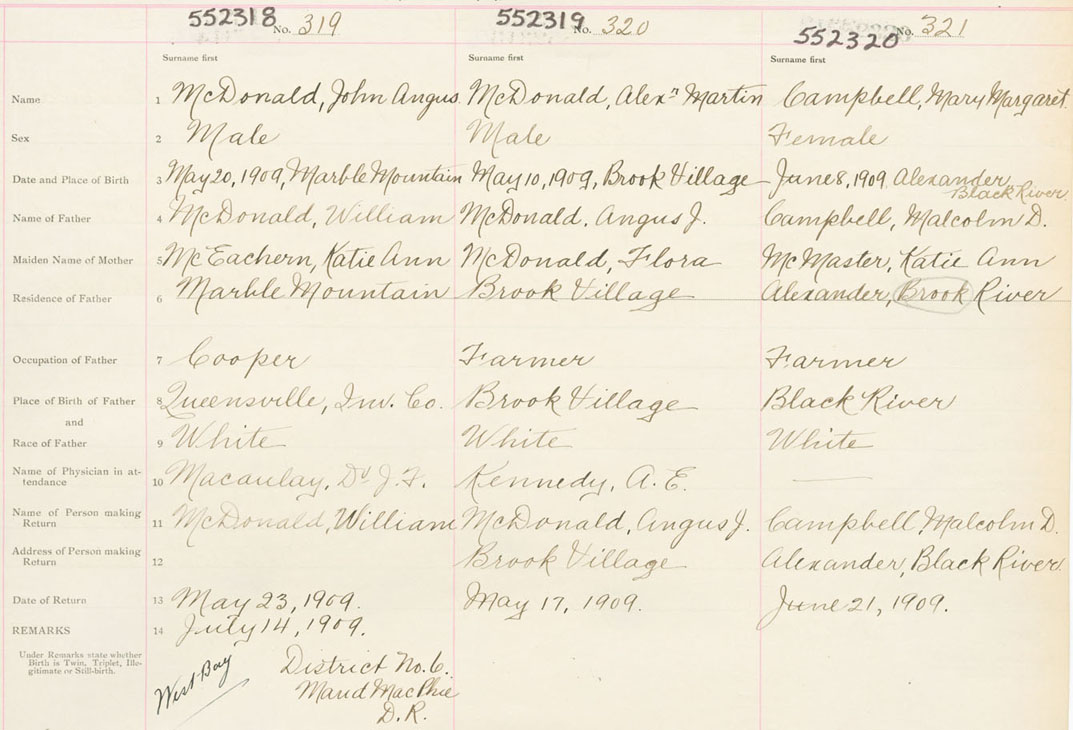 552318 No. 319 552319 No. 320 552320 No. 321
Surname first Surname first Surname first
Name 1 McDonald, John Angus. McDonald, Alexr Martin Campbell, Mary Margaret.
Sex 2 Male Male Female
Date and Place of Birth 3 May 20, 1909, Marble Mountain May 10, 1909, Brook Village June 8, 1909. Alexander,
Black River.
Name of Father 4 McDonald, William McDonald, Angus J. Campbell, Malcolm D.
Maiden Name of Mother 5 McEachern, Katie Ann McDonald, Flora McMaster, Katie Ann
Residence of Father 6 Marble Mountain Brook Village Alexander, Brook River
Occupation of Father 7 Cooper Farmer Farmer
Place of Birth of Father 8 Queensville, Inv. Co. Brook Village Black River
and
Race of Father 9 White White White
Name of Physician in at-
tendance 10 Macaulay, Dr J. F. Kennedy, A. E.
Name of Person making
Return 11 McDonald, William McDonald, Angus J. Campbell, Malcolm D.
Address of Person making
Return 12 Brook Village Alexander, Black River.
Date of Return 13 May 23, 1909. May 17, 1909. June 21, 1909.
REMARKS 14 July 14, 1909.
Under Remarks state whether
Birth is Twin, Triplet, Ille-
gitimate or Still-birth.
West Bay
District No. 6.
Maud MacPhie
D. R.